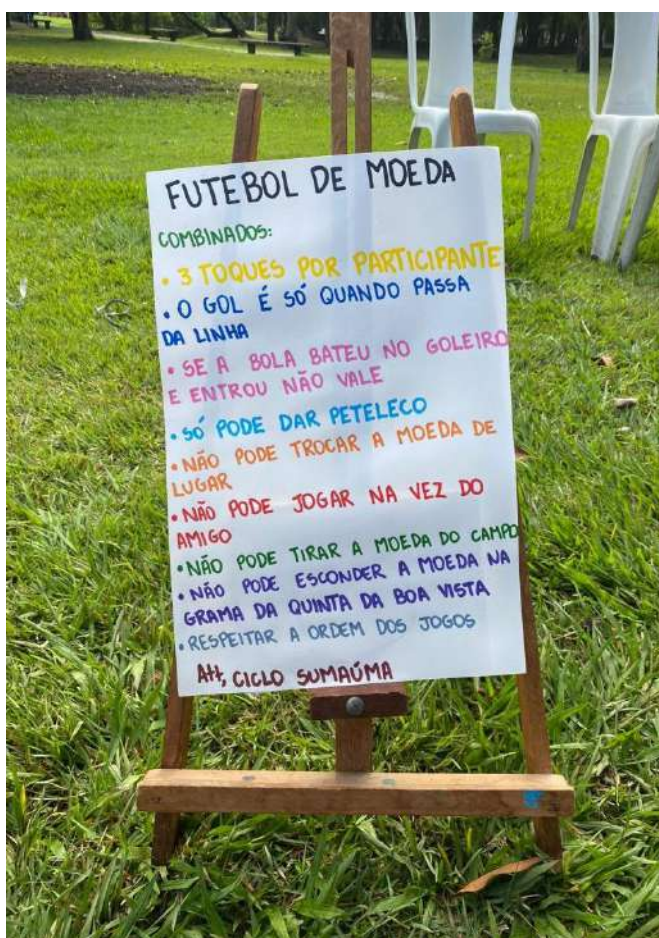 FUTEBOL DE MOEDA
COMBINADOS:
• 3 TOQUES POR PARTICIPANTE
• O GOL É SÓ QUANDO PASSA
DA LINHA
• SE A BOLA BATEU NO GOLEIRO
E ENTROU NÃO VALE
• SÓ PODE DAR PETELECO
• NÃO PODE TROCAR A MOEDA DE
LUGAR
• NÃO PODE JOGAR NA VEZ DO
AMIGO
• NÃO PODE TIRAR A MOEDA DO CAMPO
• NÃO PODE ESCONDER A MOEDA NA
GRAMA DA QUINTA DA BOA VISTA
• RESPEITAR A ORDEM DOS JOGOS
Att, CICLO SUMAÚMA